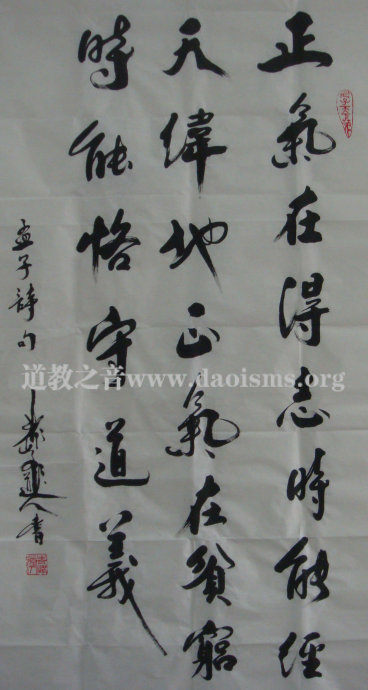 正氣在得志時能經
天緯地正氣在貧窮
時能恪守道義
孟子詩句
書
道教之音www.daoisms.org